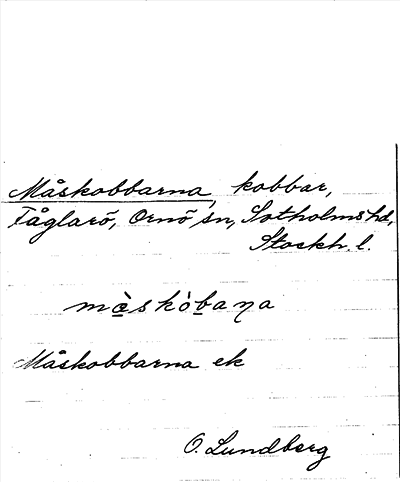 Måskobbarna, kobbar,
Fåglarö, Ornö sn, Sotholms hd,
Stockh. l.
mɑ̀skòbaɳa
Måskobbarna ek
O. Lundberg